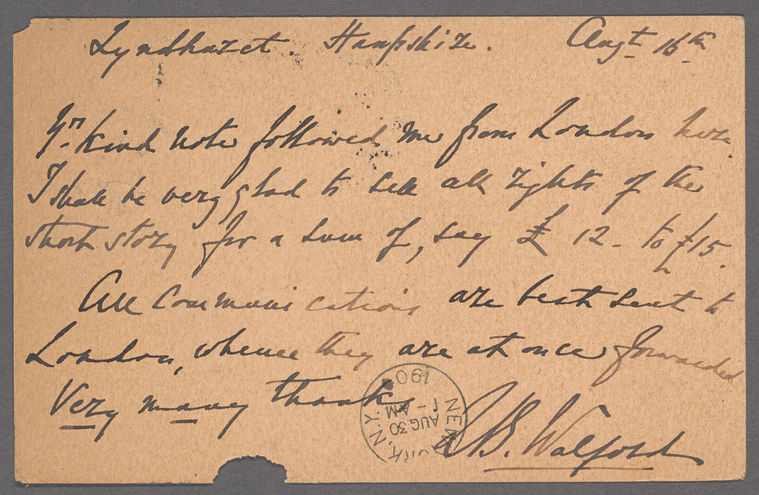 Lyndhurst. Hampshire. Augt 16th
Yr. kind note followed me from London here.
I shall be very glad to sell all rights of the
short story for a sum of, say £12 - to £15.
All communications are best sent to
London, whence they are at once forwarded
Very many thanks
L B. Walford
NEW YORK, N.Y.
AUG 30
1 - AM
190